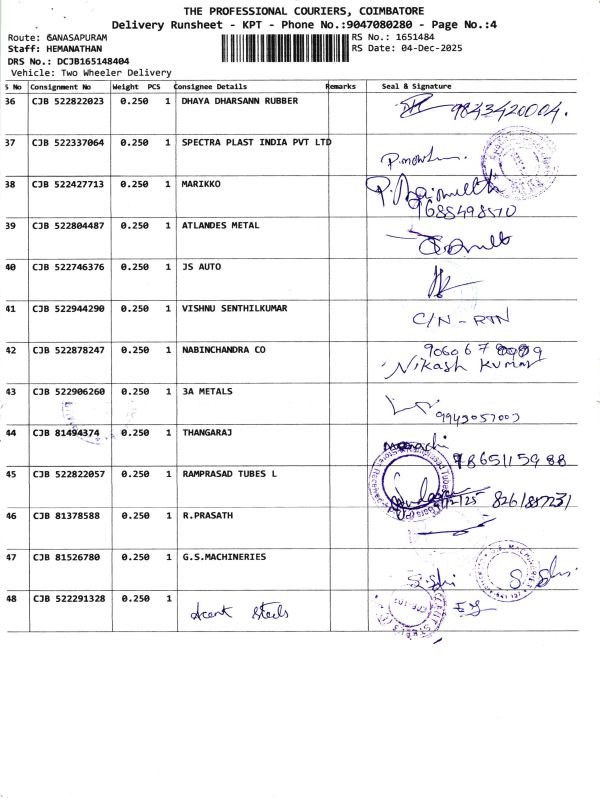 THE PROFESSIONAL COURIERS, COIMBATORE
Delivery Runsheet - KPT - Phone No.:9047080280 - Page No.:4
Route: GANASAPURAM
RS No.: 1651484
Staff: HEMANATHAN
RS Date: 04-Dec-2025
DRS No.: DCJB165148404
Vehicle: Two Wheeler Delivery
S No Consignment No Weight PCS Consignee Details Remarks Seal & Signature
36 CJB 522822023 0.250 1 DHAYA DHARSANN RUBBER 9843420004.
37 CJB 522337064 0.250 1 SPECTRA PLAST INDIA PVT LTD
38 CJB 522427713 0.250 1 MARIKKO
39 CJB 522804487 0.250 1 ATLANDES METAL
40 CJB 522746376 0.250 1 JS AUTO
41 CJB 522944290 0.250 1 VISHNU SENTHILKUMAR C/N - RTN
42 CJB 522878247 0.250 1 NABINCHANDRA CO
Nikash Kumar
43 CJB 522906260 0.250 1 3A METALS
44 CJB 81494374 0.250 1 THANGARAJ 9865115988
45 CJB 522822057 0.250 1 RAMPRASAD TUBES L
46 CJB 81378588 0.250 1 R.PRASATH
47 CJB 81526780 0.250 1 G.S.MACHINERIES
48 CJB 522291328 0.250 1 Acent Steels